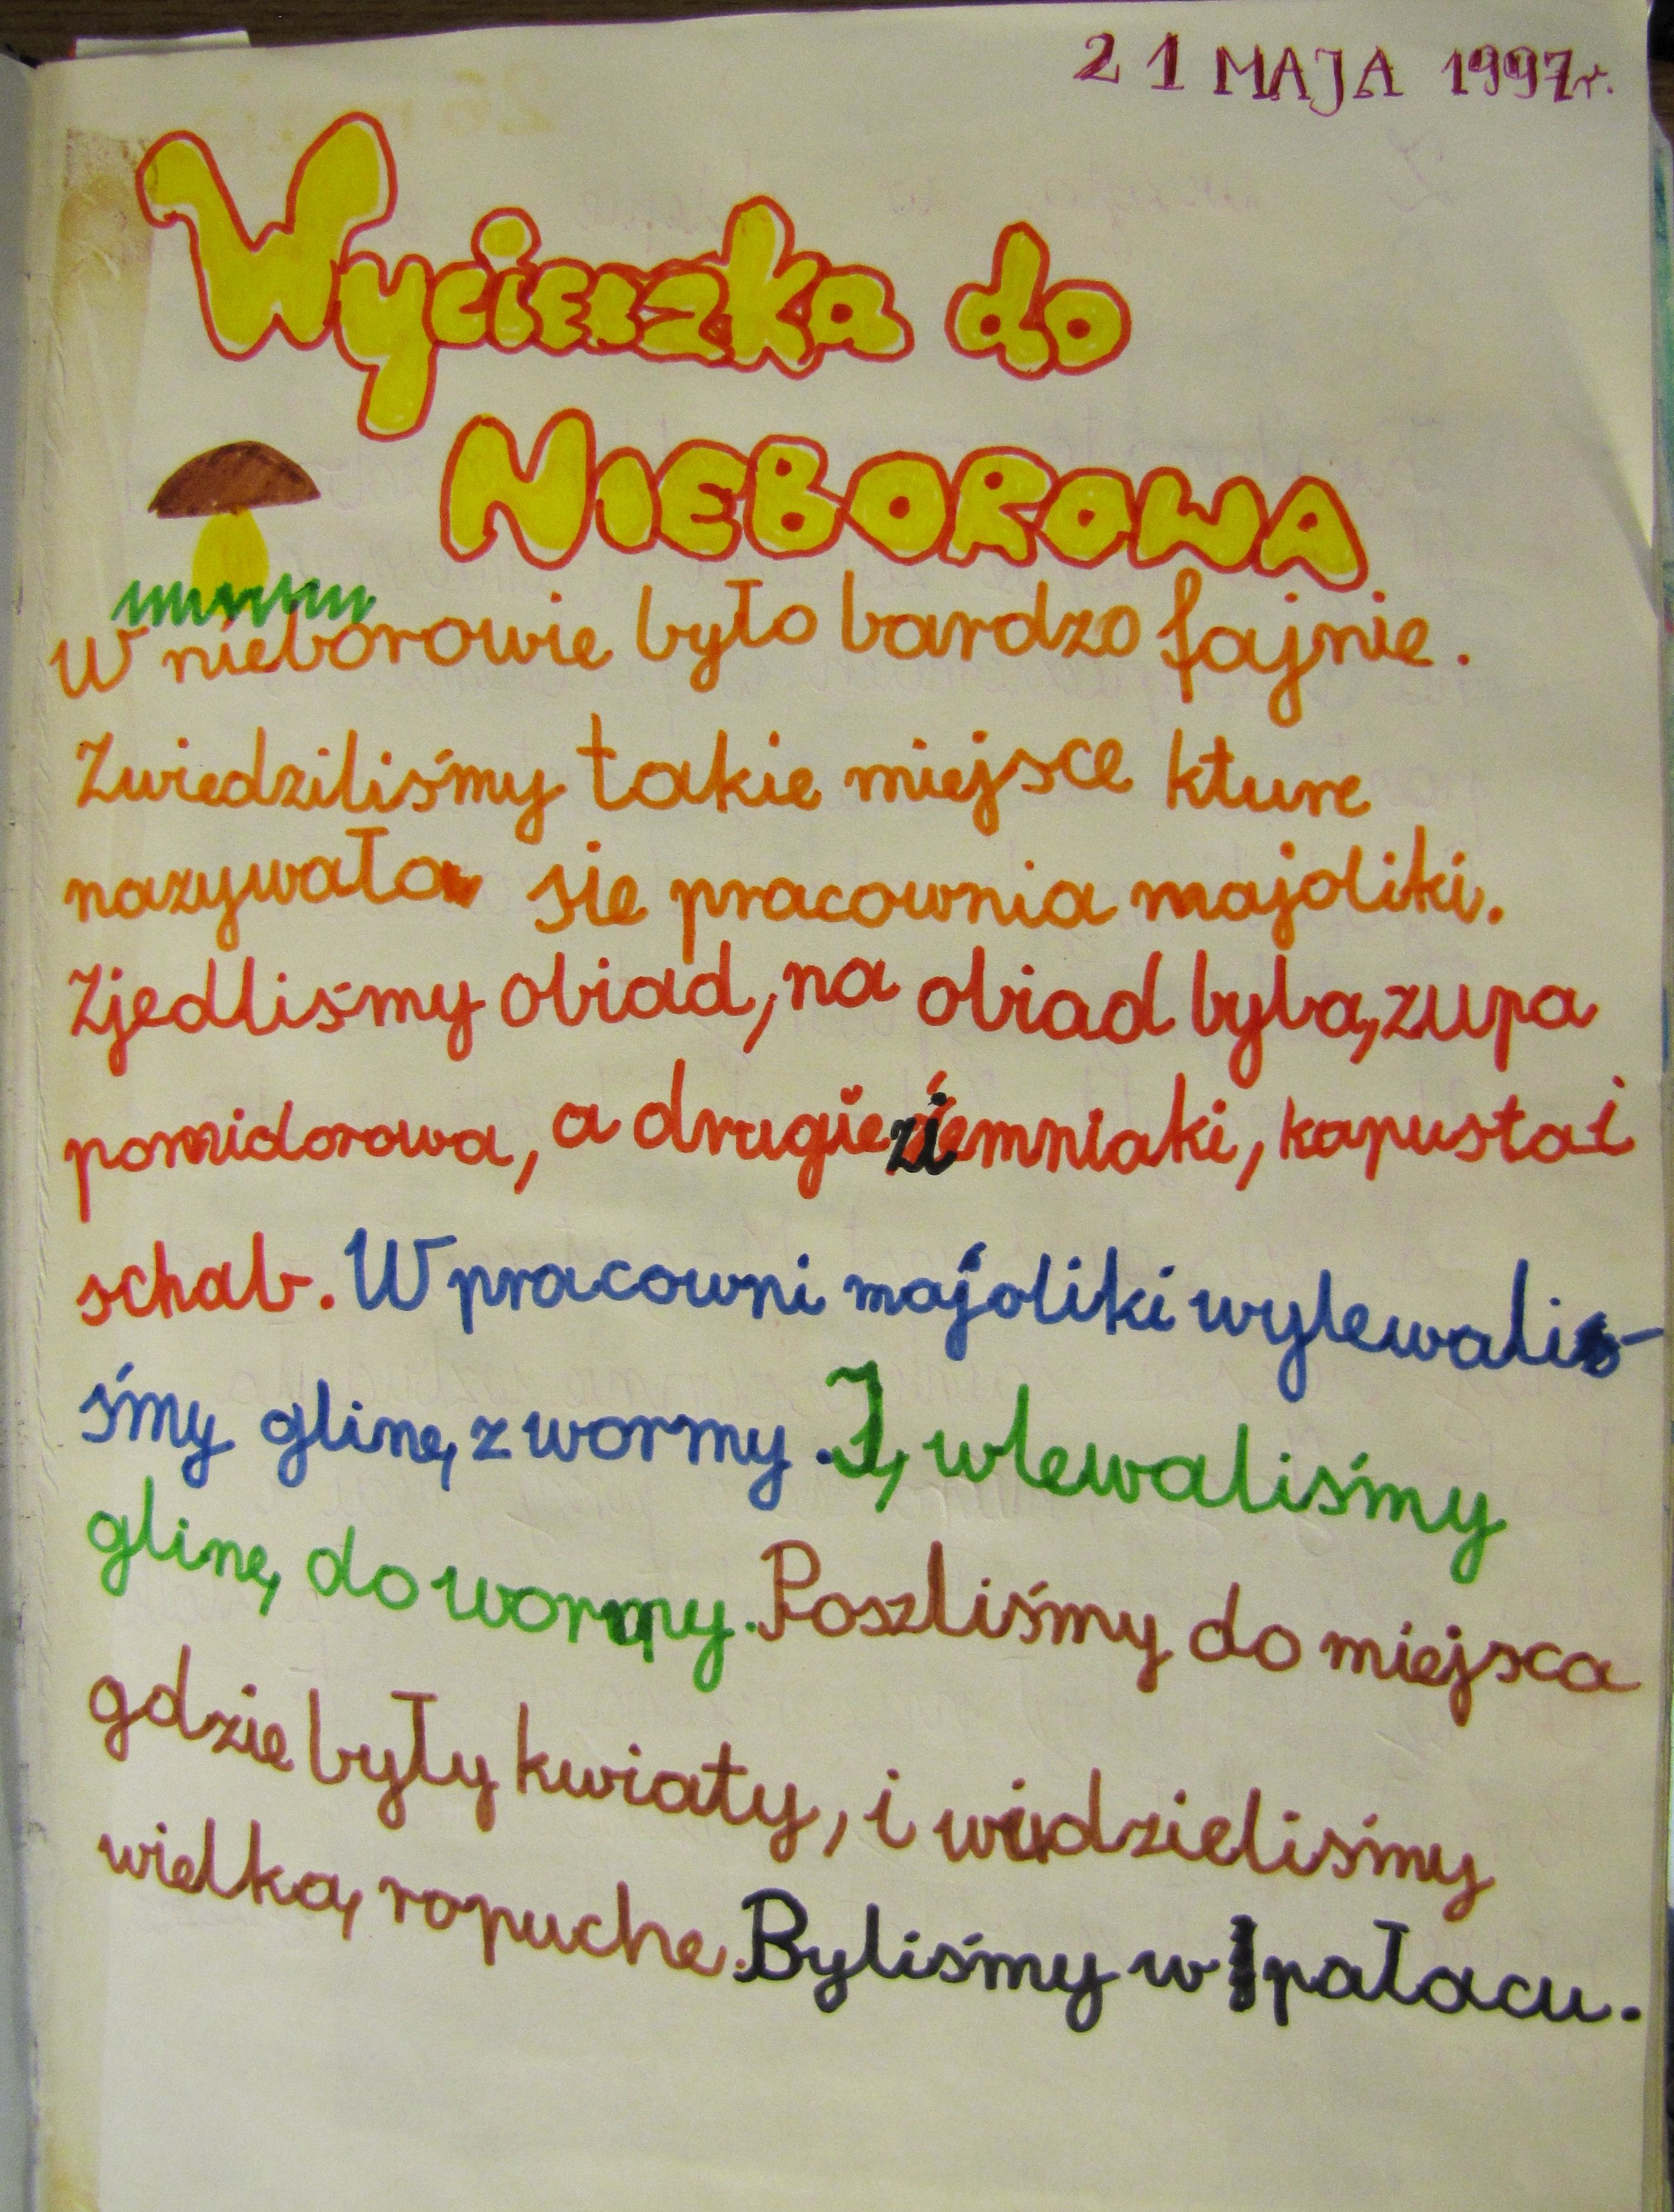 21 MAJA 1997r.
Wycieczka do
NIEBOROWA
W nieborowie było bardzo fajnie.
Zwiedziliśmy takie miejsce kture
nazywało sie pracownia majoliki.
Zjedliśmy obiad, na obiad była, zupa
pomidorowa, a drugie ziemniaki, kapusta i
schab. W pracowni majoliki wylewaliś-
śmy glinę z wormy. I, wlewaliśmy
glinę do wormy. Poszliśmy do miejsca
gdzie były kwiaty, i widzieliśmy
wielką ropuchę. Byliśmy w pałacu.